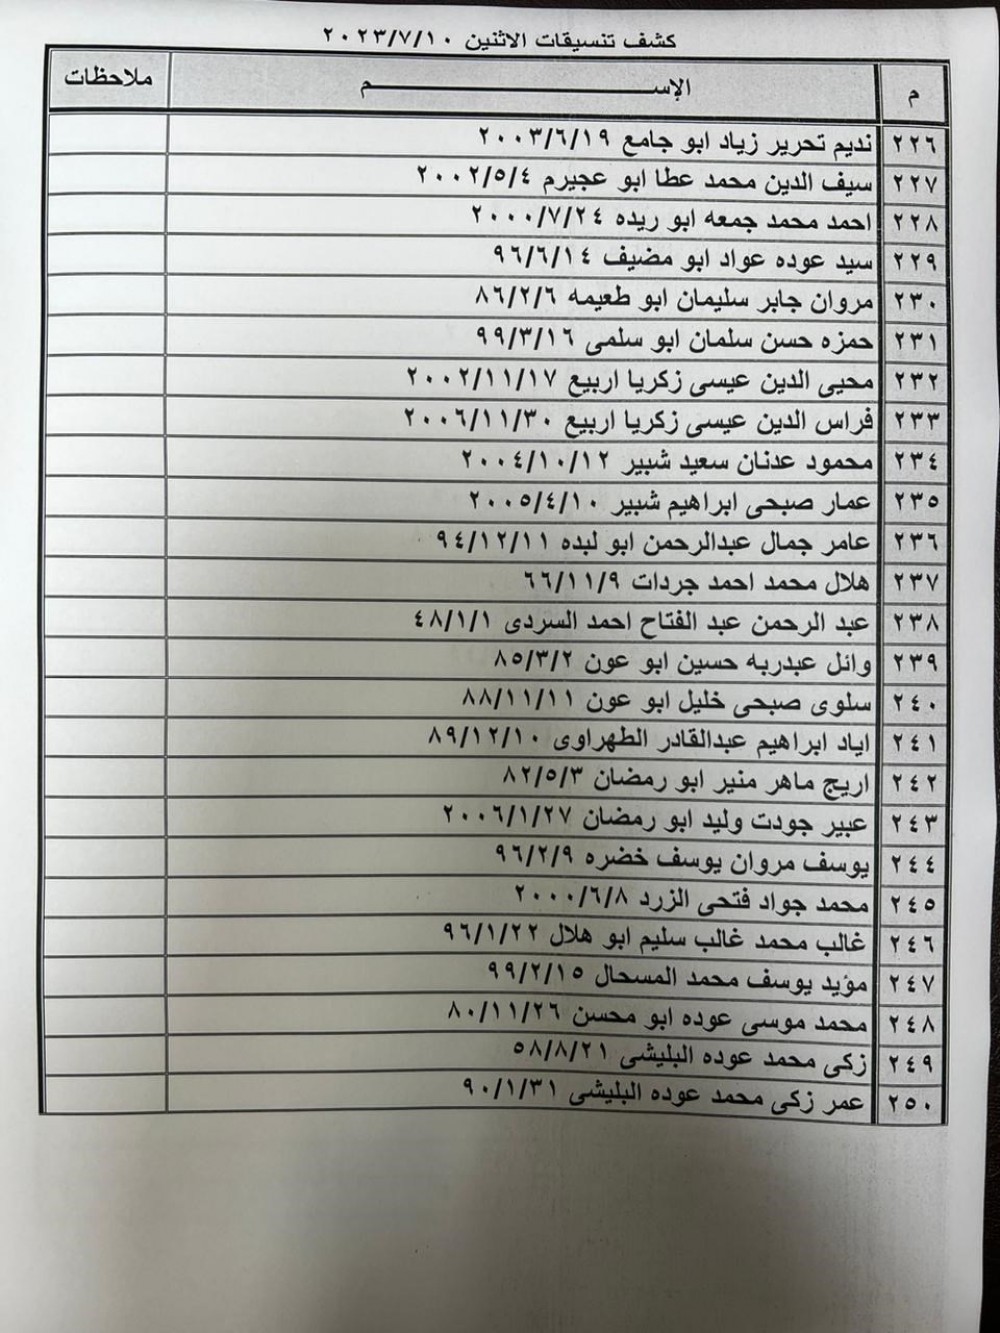 كشف تنسيقات الاثنين ٢٠٢٣/٧/١٠
م الإســــــــــــــم ملاحظات
٢٢٦ نديم تحرير زياد ابو جامع ٢٠٠٣/٦/١٩
٢٢٧ سيف الدين محمد عطا ابو عجيرم ٢٠٠٢/٥/٤
٢٢٨ احمد محمد جمعه ابو ريده ٢٠٠٠/٧/٢٤
٢٢٩ سيد عوده عواد ابو مضيف ٩٦/٦/١٤
٢٣٠ مروان جابر سليمان ابو طعيمه ٨٦/٢/٦
٢٣١ حمزه حسن سلمان ابو سلمى ٩٩/٣/١٦
٢٣٢ محيى الدين عيسى زكريا اربيع ٢٠٠٢/١١/١٧
٢٣٣ فراس الدين عيسى زكريا اربيع ٢٠٠٦/١١/٣٠
٢٣٤ محمود عدنان سعيد شبير ٢٠٠٤/١٠/١٢
٢٣٥ عمار صبحى ابراهيم شبير ٢٠٠٥/٤/١٠
٢٣٦ عامر جمال عبدالرحمن ابو لبده ٩٤/١٢/١١
٢٣٧ هلال محمد احمد جردات ٦٦/١١/٩
٢٣٨ عبد الرحمن عبد الفتاح احمد السردى ٤٨/١/١
٢٣٩ وائل عبدربه حسين ابو عون ٨٥/٣/٢
٢٤٠ سلوى صبحى خليل ابو عون ٨٨/١١/١١
٢٤١ اياد ابراهيم عبدالقادر الطهراوى ٨٩/١٢/١٠
٢٤٢ اريج ماهر منير ابو رمضان ٨٢/٥/٣
٢٤٣ عبير جودت وليد ابو رمضان ٢٠٠٦/١/٢٧
٢٤٤ يوسف مروان يوسف خضره ٩٦/٢/٩
٢٤٥ محمد جواد فتحى الزرد ٢٠٠٠/٦/٨
٢٤٦ غالب محمد غالب سليم ابو هلال ٩٦/١/٢٢
٢٤٧ مؤيد يوسف محمد المسحال ٩٩/٢/١٥
٢٤٨ محمد موسى عوده ابو محسن ٨٠/١١/٢٦
٢٤٩ زكى محمد عوده البليشى ٥٨/٨/٢١
٢٥٠ عمر زكى محمد عوده البليشى ٩٠/١/٣١